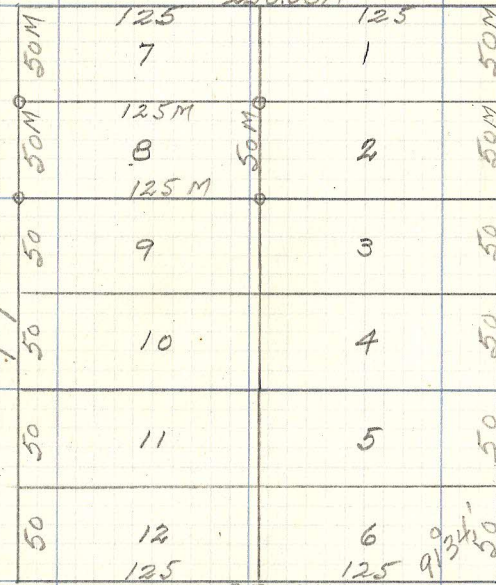 125 125
50M 7 1 50M
125M
50M 8 50M 2 50M
125 M
50 9 3 50
50 10 4 50
50 11 5 50
50 12 6 91°34' 50
125 125